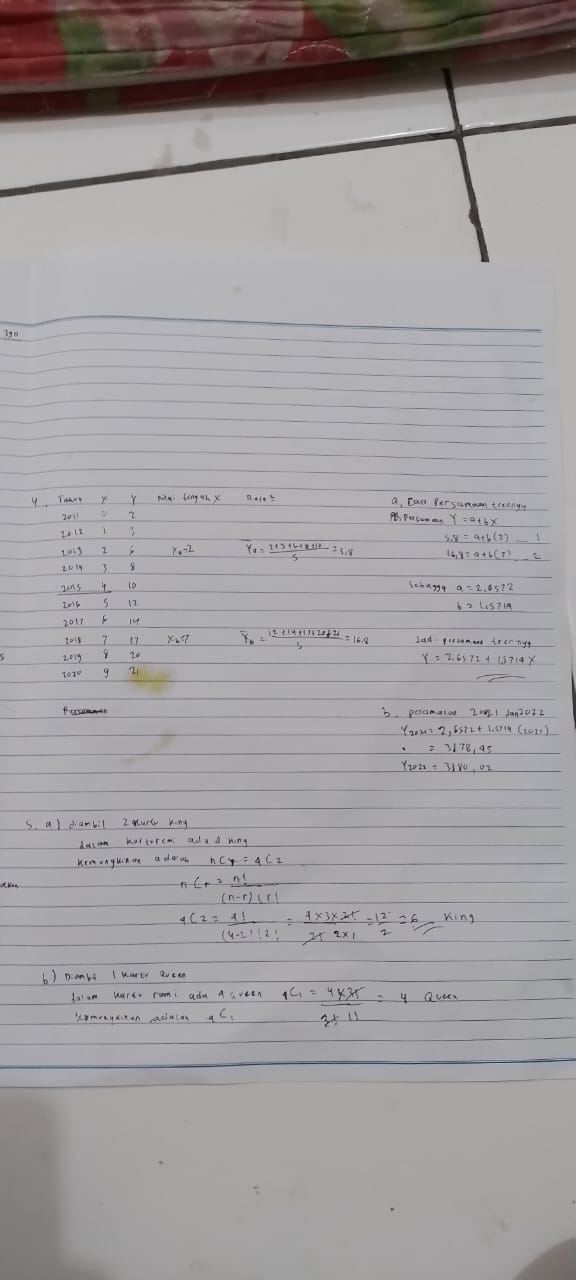 390
4. Tahun X Y Nilai tengah X Rata²
2011 0 2
2012 1 3
2013 2 6 Xa=2 Ya = 2+3+6+8+10 / 5 = 5.8
2014 3 8
2015 4 10
2016 5 12
2017 6 14
2018 7 17 Xb=7 Yb = 12+14+17+20+21 / 5 = 16.8
2019 8 20
2020 9 21
a, Cari Persamaan trennya
Persamaan Y = a+bX
5,8 = a+b(2) .. 1
16,8 = a+b(7) .. 2
Sehingga a = 2,6572
b = 1.5714
Jadi persamaan trennya
Y = 2.6572 + 1,5714 X
b. peramalan 2021 dan 2022
Y2021 = 2,6572 + 1.5714 (2021)
= 3178,45
Y2022 = 3180,02
5. a) diambil 2 kartu king
dalam kartu remi ada 4 king
kemungkinan adalah nCr = 4C2
nCr = n! / (n-r)! r!
4C2 = 4! / (4-2)! 2! = 4×3×2! / 2! 2×1 = 12 / 2 = 6 King
b) Diambil 1 kartu Queen
dalam kartu remi ada 4 Queen 4C1 = 4×3! / 3! 1! = 4 Queen
kemungkinan adalah 4C1